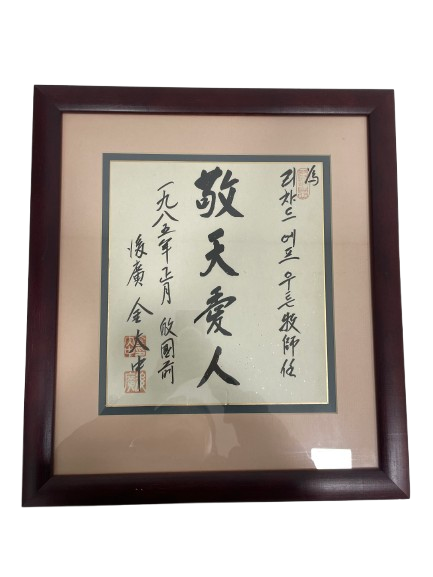 爲 리챠드 에프 우튼 牧師任
敬天愛人
一九八五年 正月 皈國前
後廣 金大中